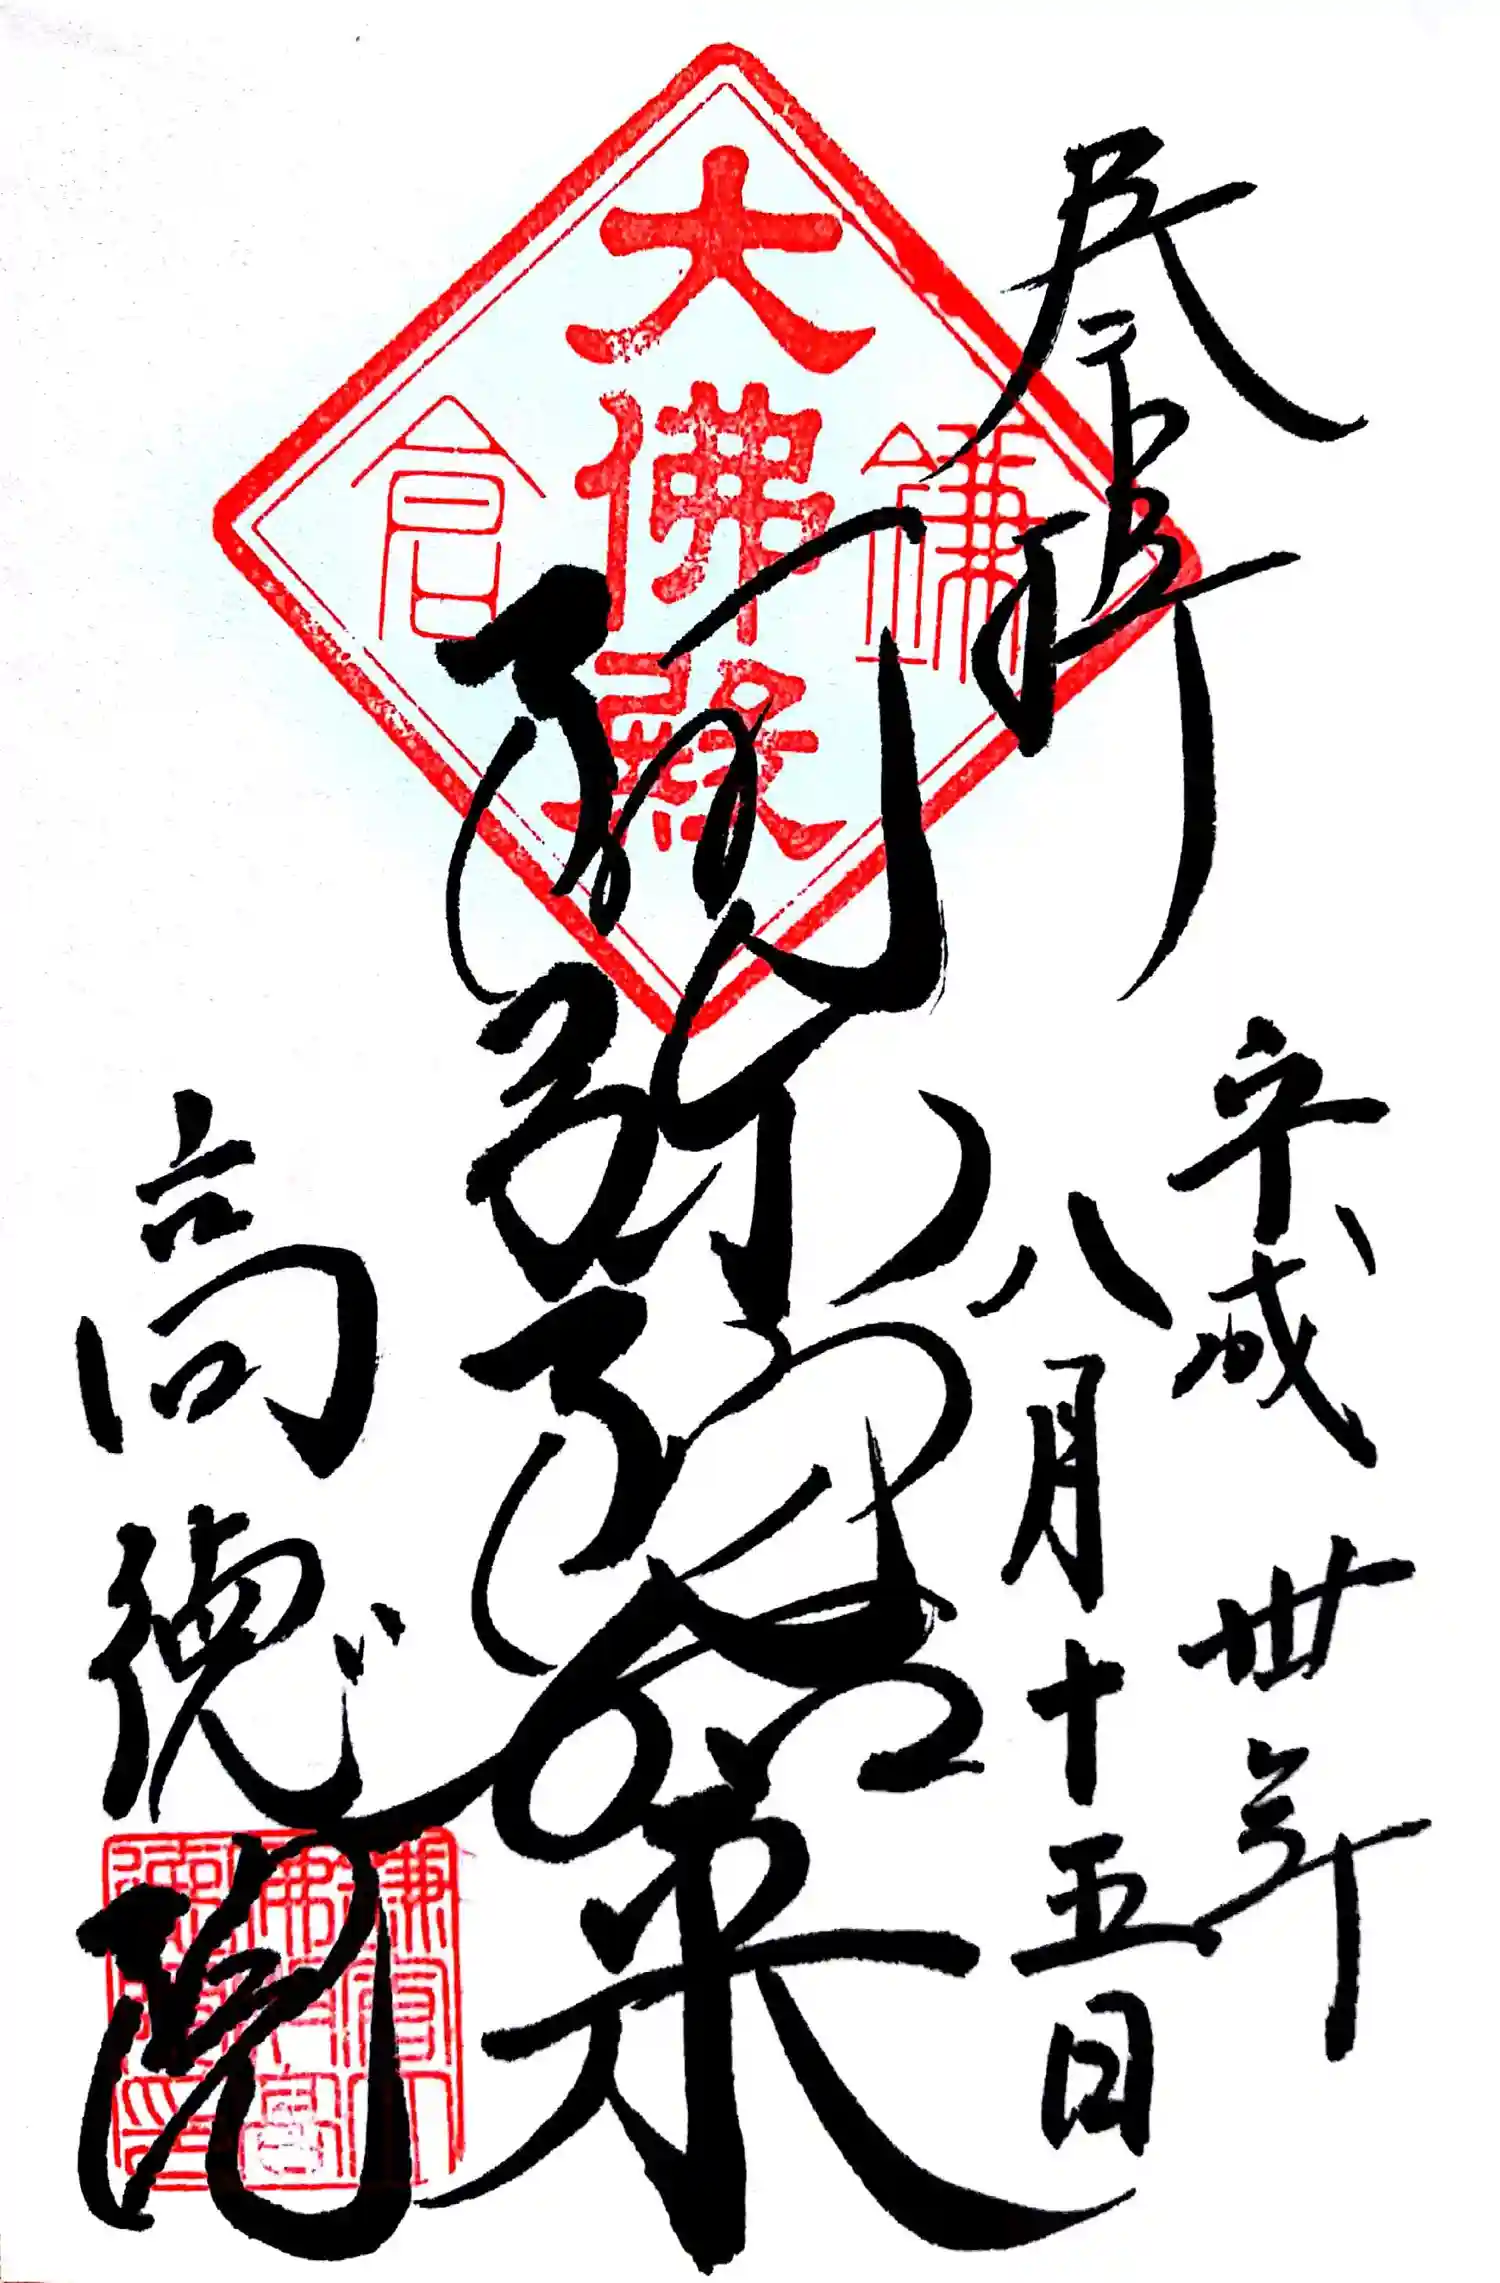 奉拝
平成卅年
八月十五日
大佛殿
鎌倉
阿弥陀如来
高徳院